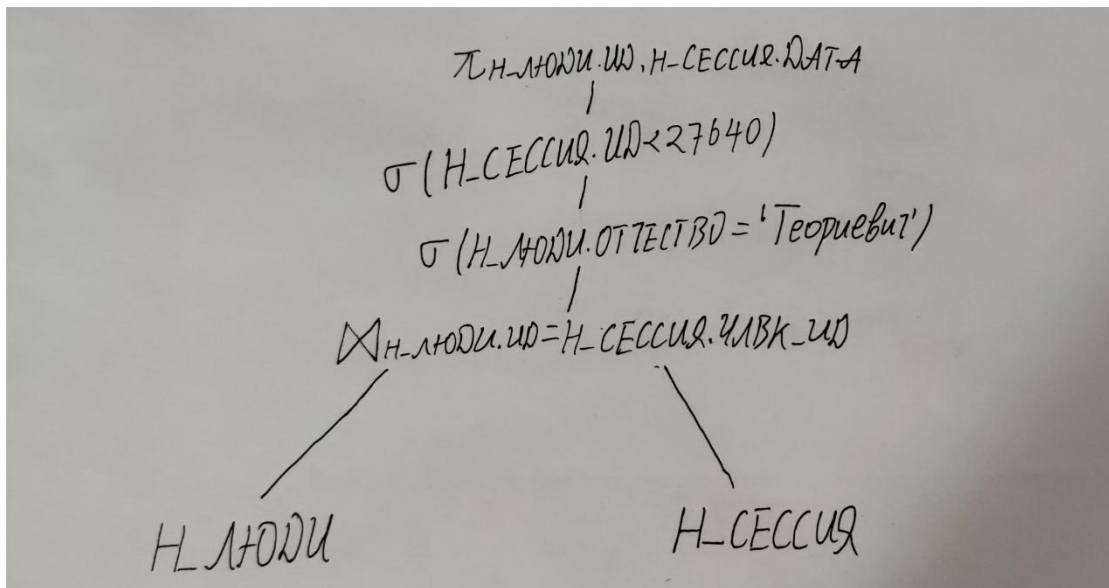 π Н_ЛЮДИ.ИД, Н_СЕССИЯ.ДАТА
σ (Н_СЕССИЯ.ИД < 27640)
σ (Н_ЛЮДИ.ОТЧЕСТВО = 'Георгиевич')
⋈ Н_ЛЮДИ.ИД = Н_СЕССИЯ.ЧЛВК_ИД
Н_ЛЮДИ Н_СЕССИЯ